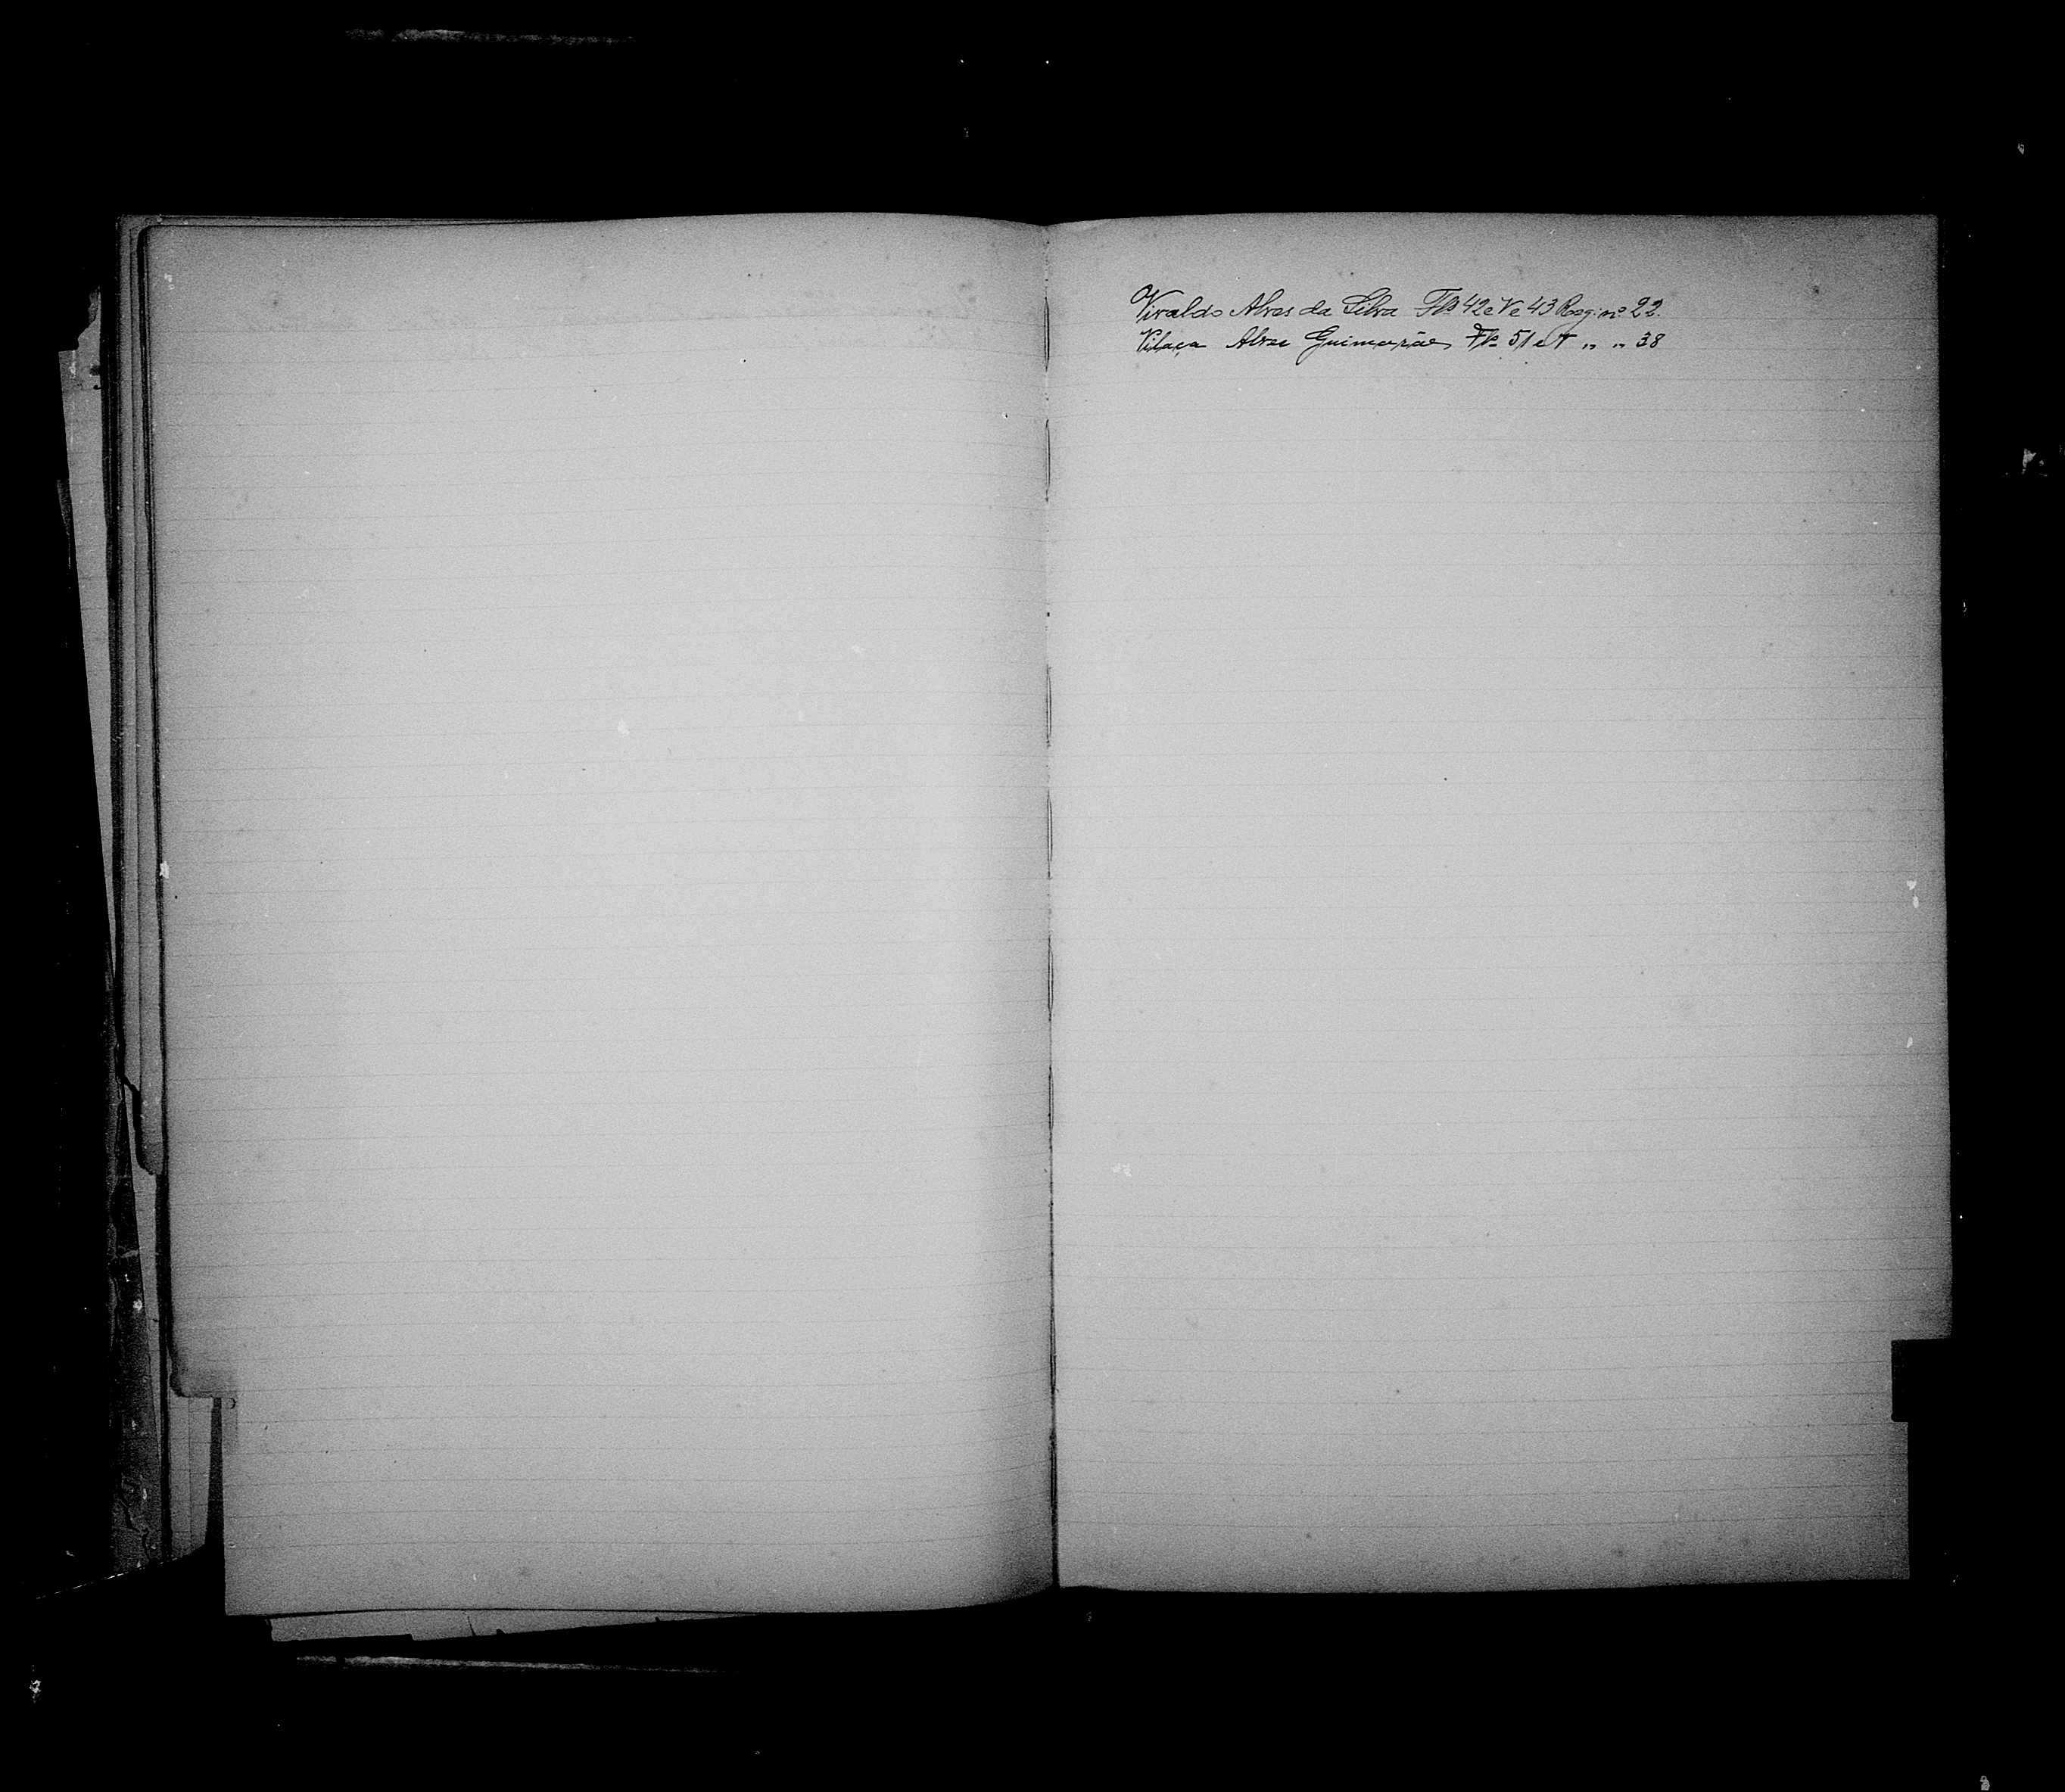 Vivaldo Alves da Silva Fls 42 e Ve 43 Reg: nº 22.
Vilaça Alves Guimarães Fls 51 e V „ „ 38